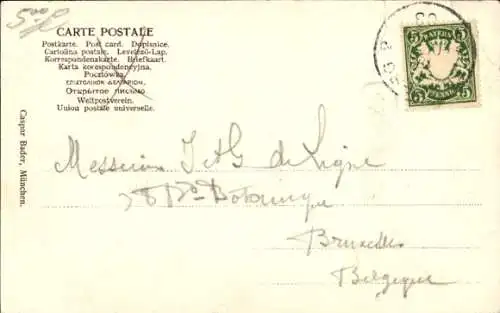 5.00
CARTE POSTALE
Postkarte. Post card. Dopisnice.
Cartolina postale. Levelező-Lap.
Korrespondenzkarte. Briefkaart.
Karta korespondencyjna.
Pocztówka.
ΕΠΙΣΤΟΛΙΚΟΝ ΔΕΛΤΑΡΙΟΝ.
Открытое письмо
Weltpostverein.
Union postale universelle.
5 BAYERN 5
5 PFENNIG 5
Caspar Bader, München.
Messieurs J & G de Ligne
Bd Botanique
Bruxelles
Belgique